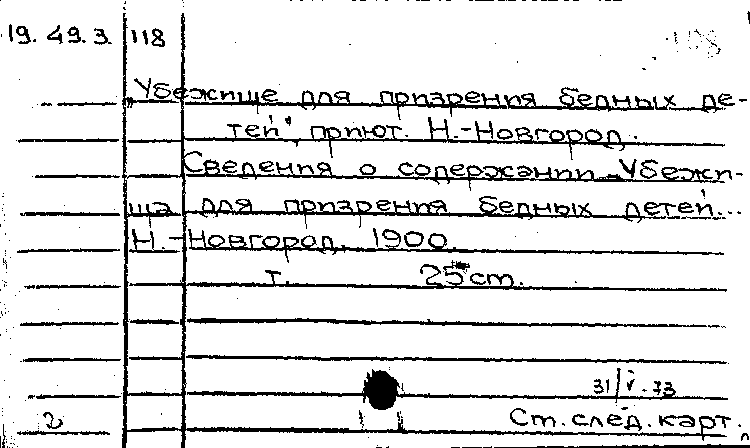 19.49.3 118 108
„Убежище для призрения бедных де-
тей", приют. Н.-Новгород.
Сведения о содержании „Убежи-
ща для призрения бедных детей...
Н.-Новгород, 1900.
т. 25 cm.
31/V.73
2 Cm. след. карт.